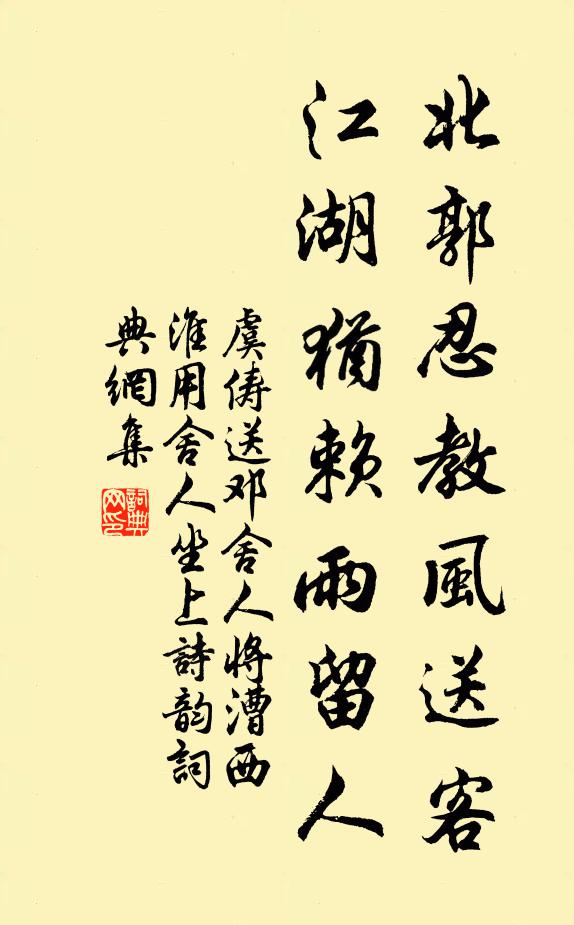 北郭忍教風送客
江湖猶賴雨留人
虞儔送邓舍人将漕西
淮用舍人坐上詩韵詞
典網集
詞典网印